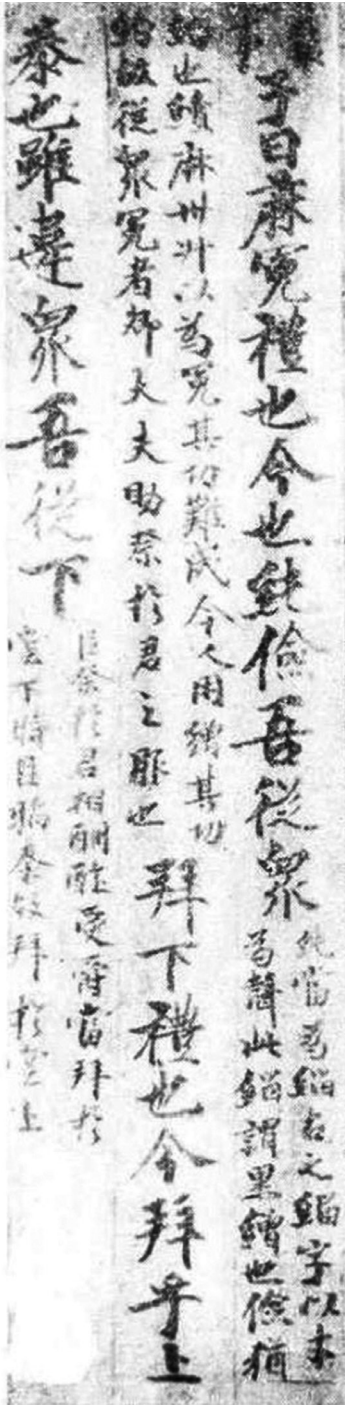 子曰麻冕禮也今也純儉吾從衆
純當為緇古之緇字以才
為聲此緇謂黑繒也儉猶
約也績麻卅升以為冕其功難成今人用繒其功
約故從衆冕者卿大夫助祭於君之服也
拜下禮也今拜乎上
泰也雖違衆吾從下
臣祭於君相酬酢受爵當拜於
堂下時臣驕泰故拜於堂上